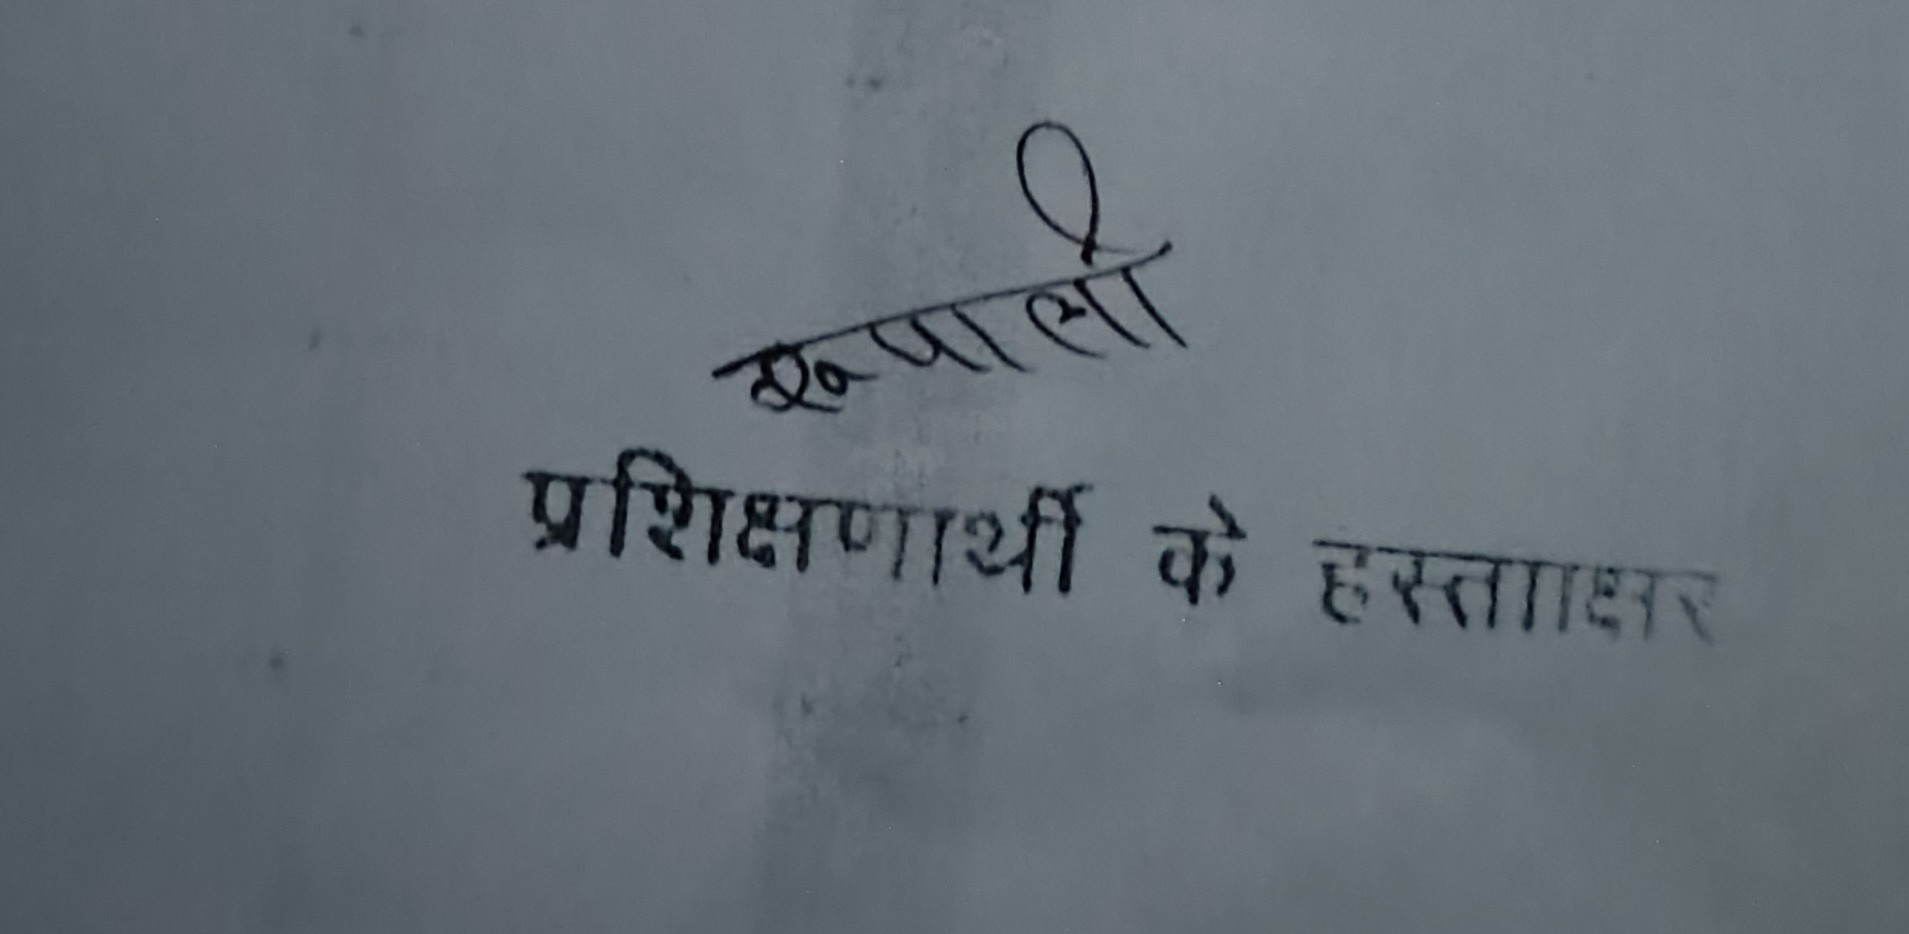 रूपाली
प्रशिक्षणार्थी के हस्तााक्षर